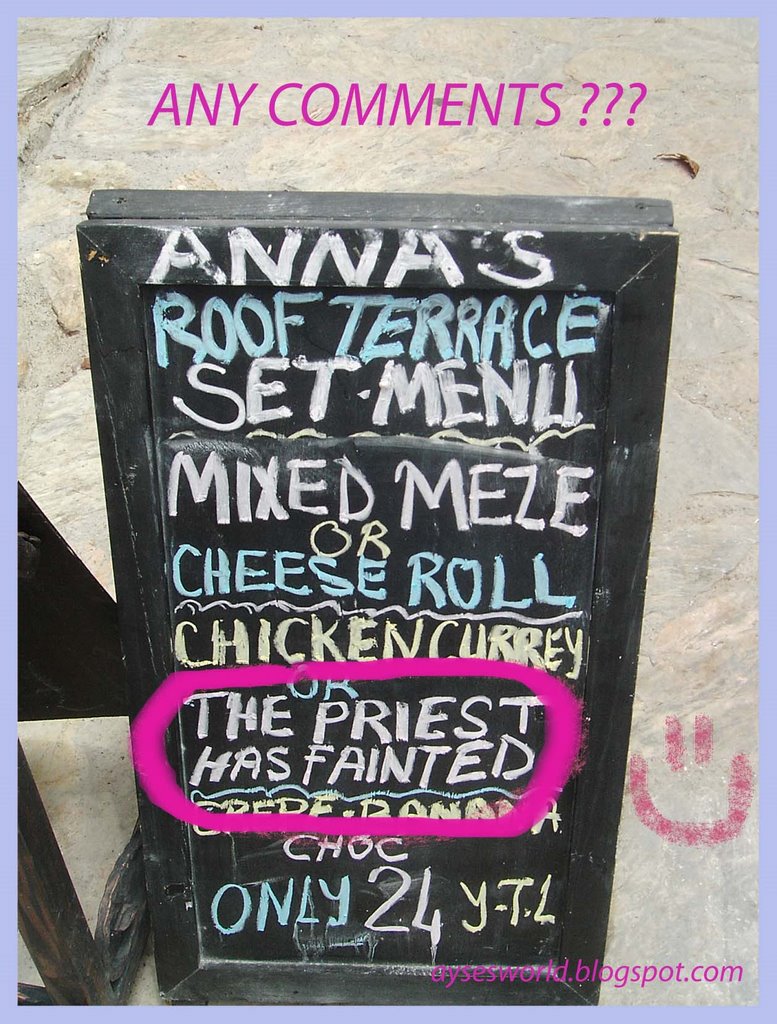 ANY COMMENTS ???
ANNA'S
ROOF TERRACE
SET·MENU
MIXED MEZE
OR
CHEESE ROLL
CHICKEN CURREY
OR
THE PRIEST
HAS FAINTED
CREPE·BANANA
CHOC
ONLY 24 Y.T.L
aysesworld.blogspot.com